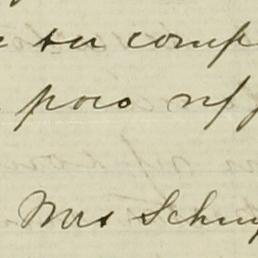 su comp
poco
Mrs Schuy